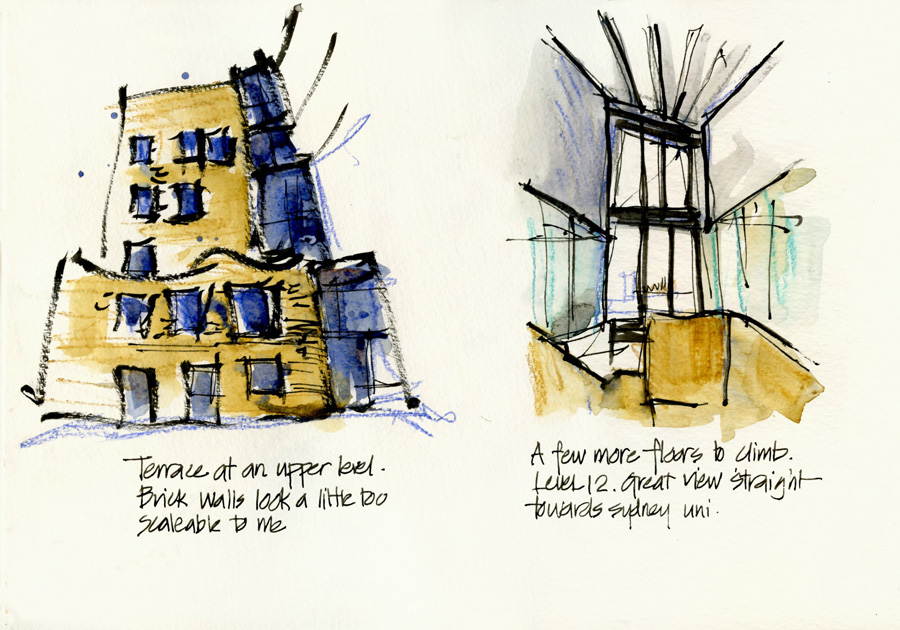 Terrace at an upper level.
Brick walls look a little too
scaleable to me
A few more floors to climb.
Level 12. Great view straight
towards sydney uni.